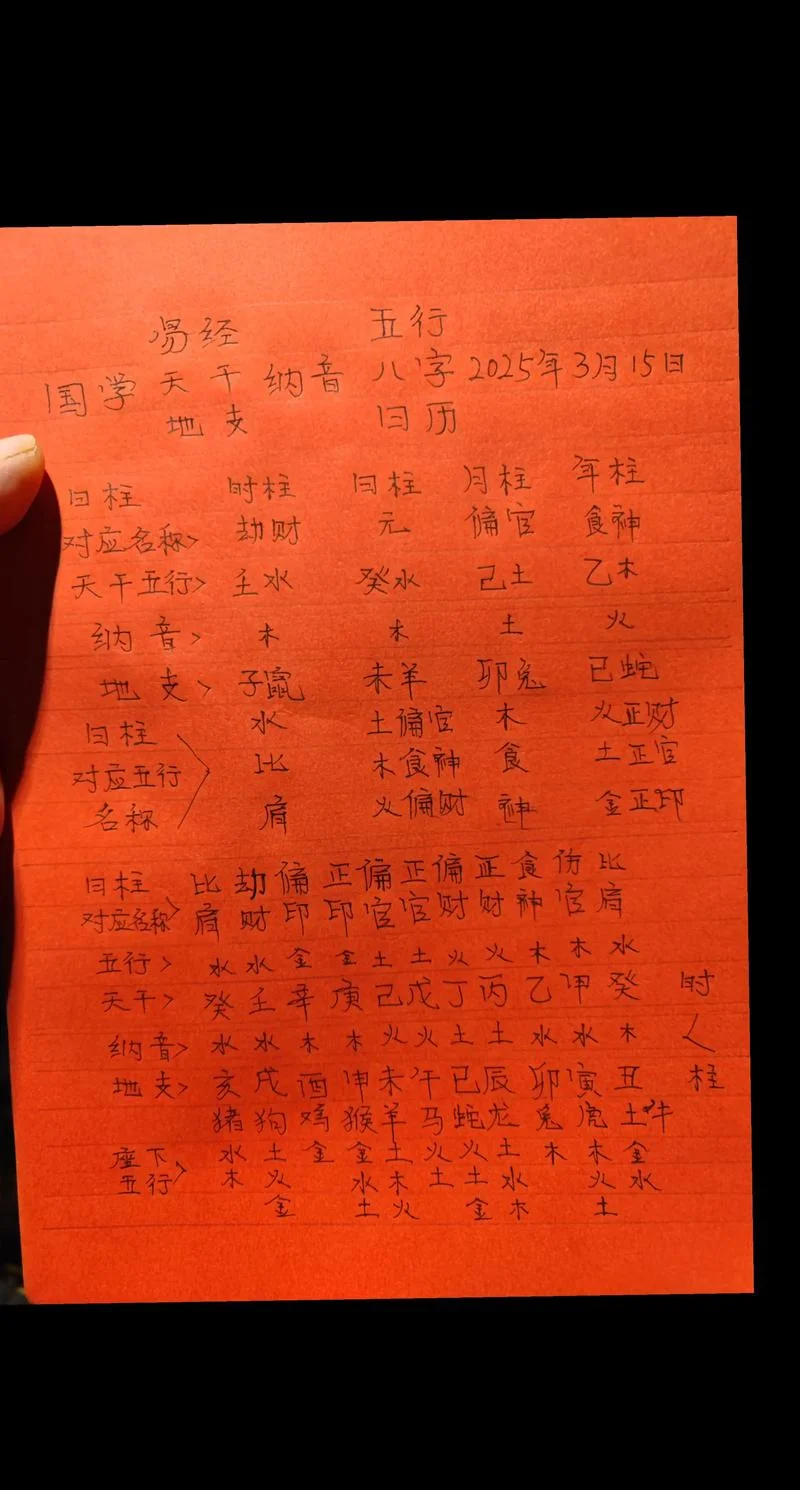 易经 五行
国学 天干 纳音 八字 2025年3月15日
地支 日历
日柱 时柱 日柱 月柱 年柱
对应名称> 劫财 元 偏官 食神
天干五行> 壬水 癸水 己土 乙木
纳音> 木 木 土 火
地支> 子鼠 未羊 卯兔 巳蛇
日柱 水 土偏官 木 火正财
对应五行 比 木食神 食 土正官
名称 肩 火偏财 神 金正印
日柱 比 劫 偏 正 偏 正 偏 正 食 伤 比
对应名称> 肩 财 印 印 官 官 财 财 神 官 肩
五行> 水 水 金 金 土 土 火 火 木 木 水
天干> 癸 壬 辛 庚 己 戊 丁 丙 乙 甲 癸 时
纳音> 水 水 木 木 火 火 土 土 水 水 木 <
地支> 亥 戌 酉 申 未 午 巳 辰 卯 寅 丑 柱
猪 狗 鸡 猴 羊 马 蛇 龙 兔 虎 土牛
座下 水 土 金 金 土 火 火 土 木 木 金
五行> 木 火 水 木 土 土 水 火 水
金 土 火 金 木 土